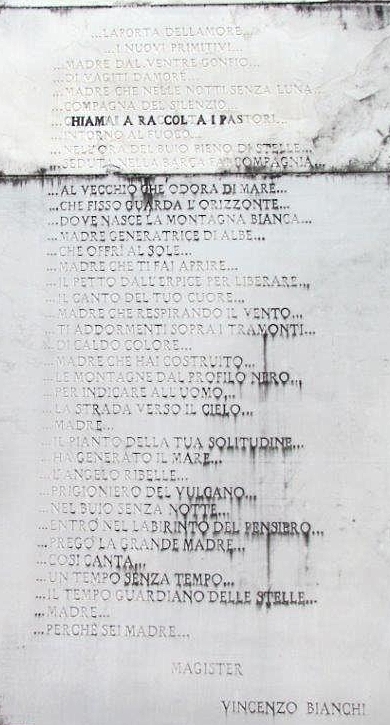 ...LA PORTA DELL'AMORE...
...I NUOVI PRIMITIVI...
...MADRE DAL VENTRE GONFIO...
...DI VAGITI D'AMORE...
...MADRE CHE NELLE NOTTI SENZA LUNA...
...COMPAGNA DEL SILENZIO...
...CHIAMAI A RACCOLTA I PASTORI...
...INTORNO AL FUOCO...
...NELL'ORA DEL BUIO PIENO DI STELLE...
...SEDUTA NELLA BARCA FAI COMPAGNIA...
...AL VECCHIO CHE ODORA DI MARE...
...CHE FISSO GUARDA L'ORIZZONTE...
...DOVE NASCE LA MONTAGNA BIANCA...
...MADRE GENERATRICE DI ALBE...
...CHE OFFRI AL SOLE...
...MADRE CHE TI FAI APRIRE...
...IL PETTO DALL'ERPICE PER LIBERARE...
...IL CANTO DEL TUO CUORE...
...MADRE CHE RESPIRANDO IL VENTO...
...TI ADDORMENTI SOPRA I TRAMONTI...
DI CALDO COLORE...
...MADRE CHE HAI COSTRUITO...
...LE MONTAGNE DAL PROFILO NERO...
...PER INDICARE ALL'UOMO...
...LA STRADA VERSO IL CIELO...
...MADRE...
...IL PIANTO DELLA TUA SOLITUDINE...
...HA GENERATO IL MARE...
...L'ANGELO RIBELLE...
...PRIGIONIERO DEL VULCANO...
...NEL BUIO SENZA NOTTE...
...ENTRÒ NEL LABIRINTO DEL PENSIERO...
...PREGÒ LA GRANDE MADRE...
...COSÌ CANTA...
...UN TEMPO SENZA TEMPO...
...IL TEMPO GUARDIANO DELLE STELLE...
...MADRE...
...PERCHÈ SEI MADRE...
MAGISTER
VINCENZO BIANCHI